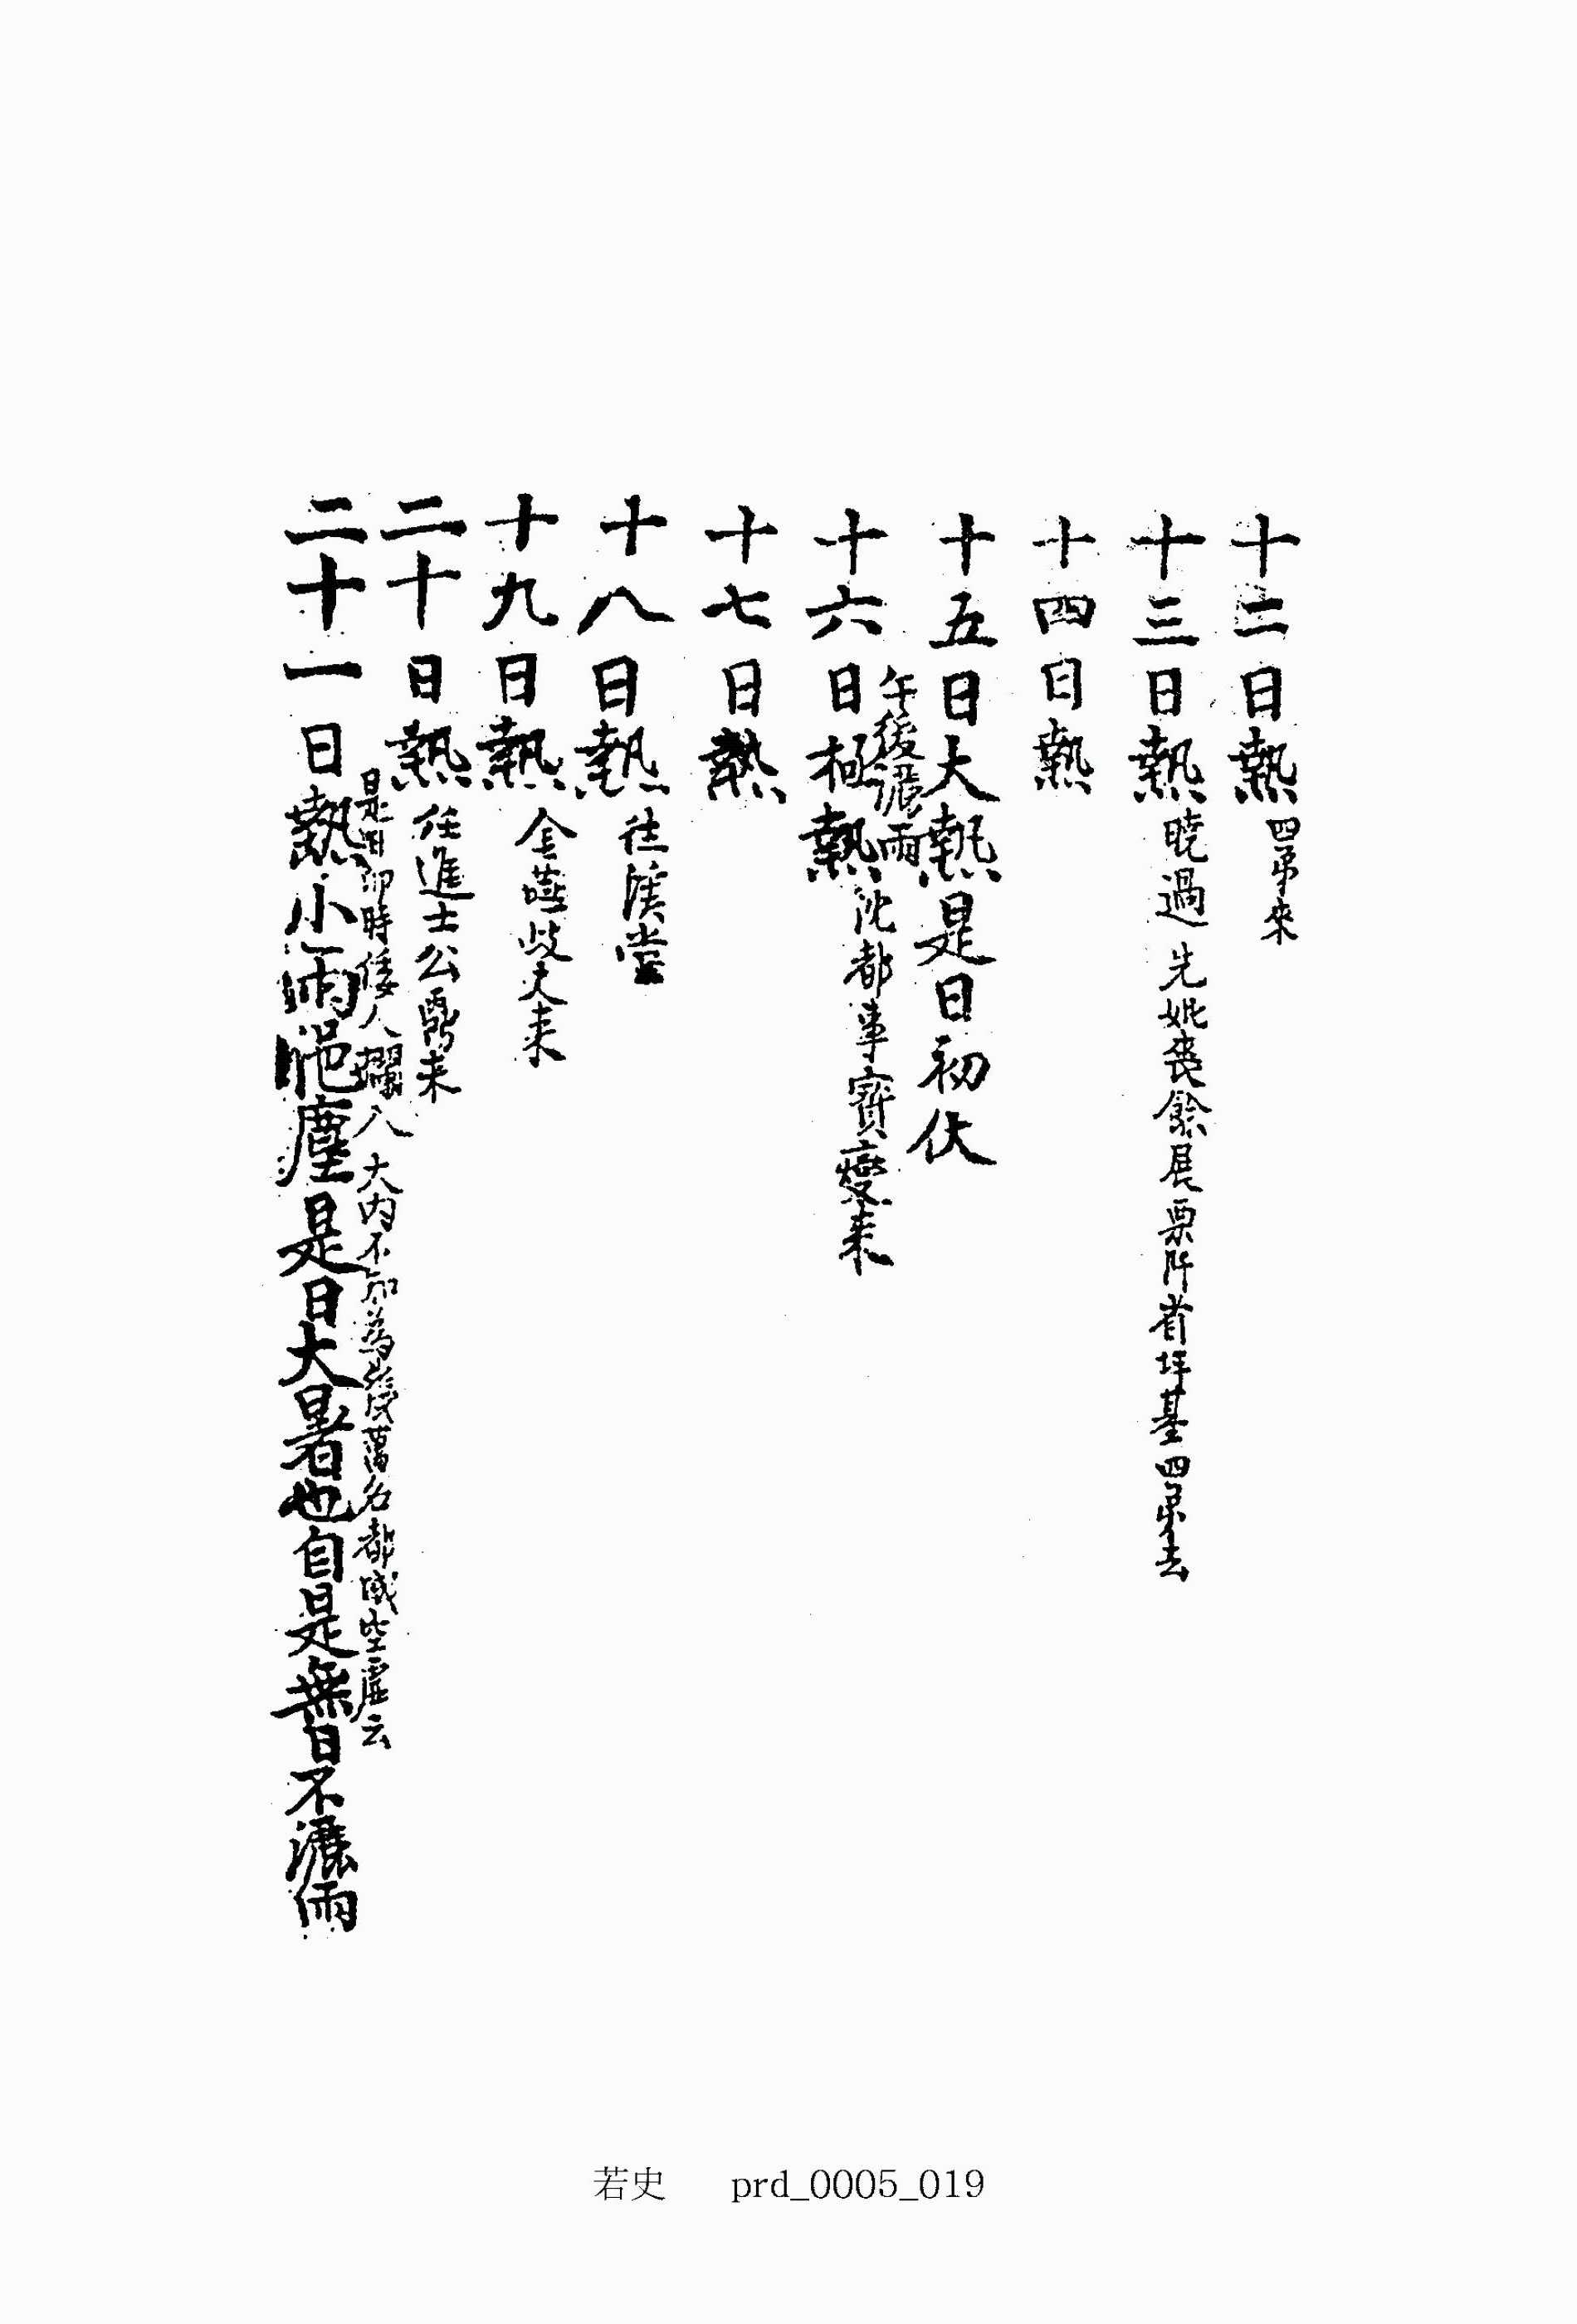 十二日熱四弟來
十三日熱曉過先妣喪餘晨票所省坪基四弟去
十四日熱
十五日大熱是日初伏
午後灑雨
十六日極熱沈都事寶燮來
十七日熱
十八日熱往溪堂
十九日熱金歧丈来
二十日熱任進士公来
是日卯時倭人攔入大内不知爲幾萬名都城空虛云
二十一日熱小雨浥塵是日大暑也自是無日不灑雨
若史 prd_0005_019